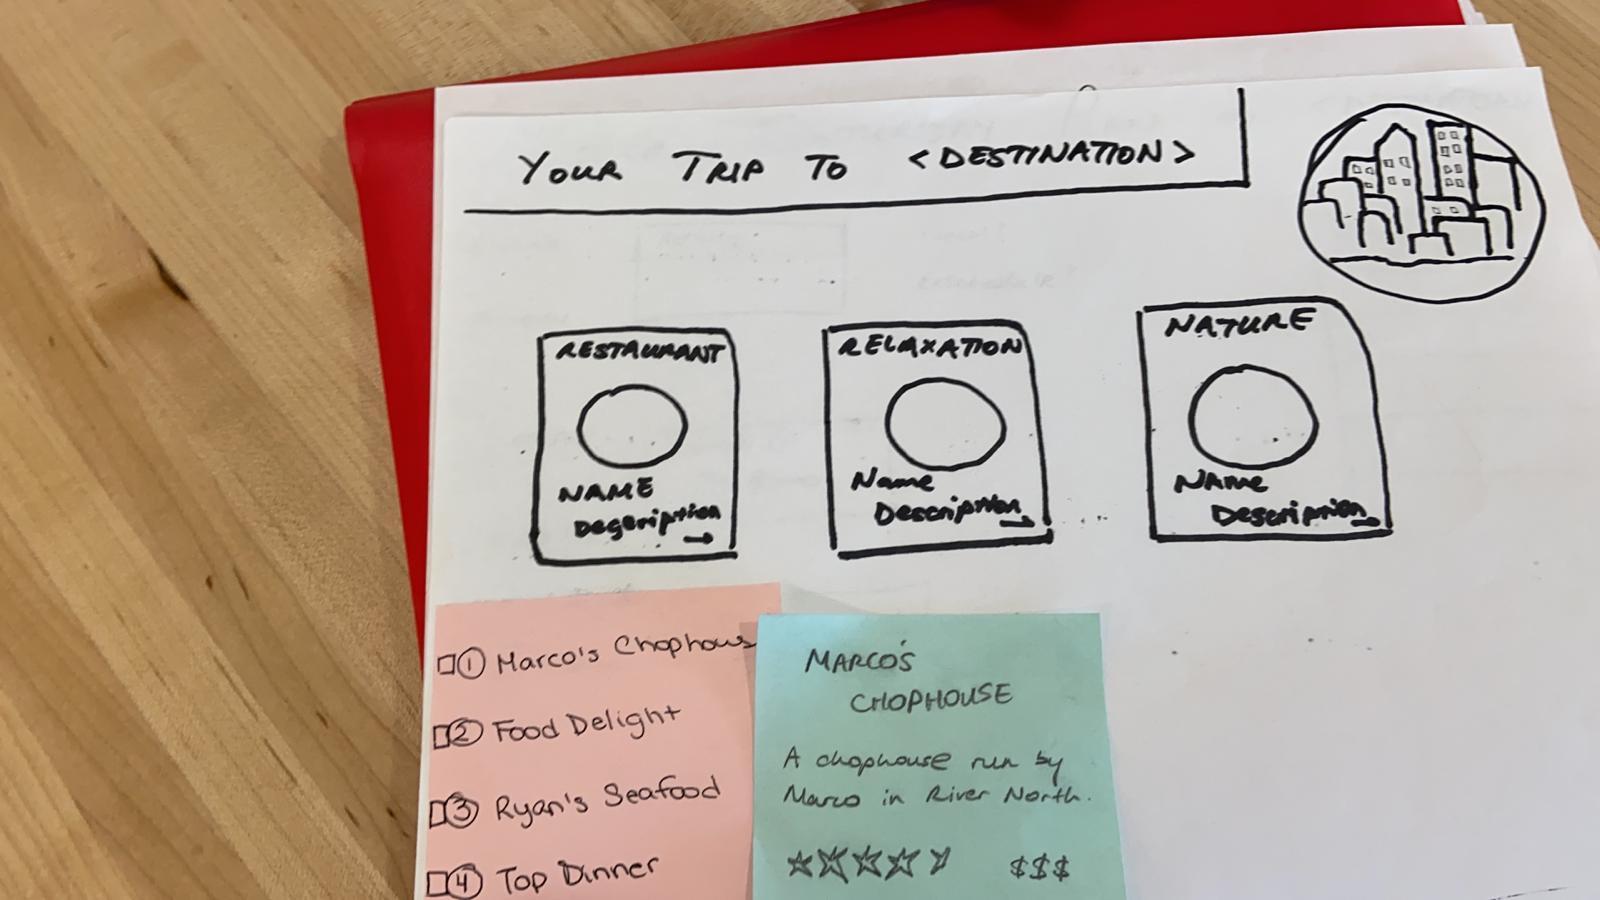 YOUR TRIP TO <DESTINATION>
RESTAURANT
NAME
Description
RELAXATION
Name
Description
NATURE
NAMe
Description
1 Marco's Chophous
2 Food Delight
3 Ryan's Seafood
4 Top Dinner
MARCO'S
CHOPHOUSE
A chophouse run by
Marco in River North.
$$$